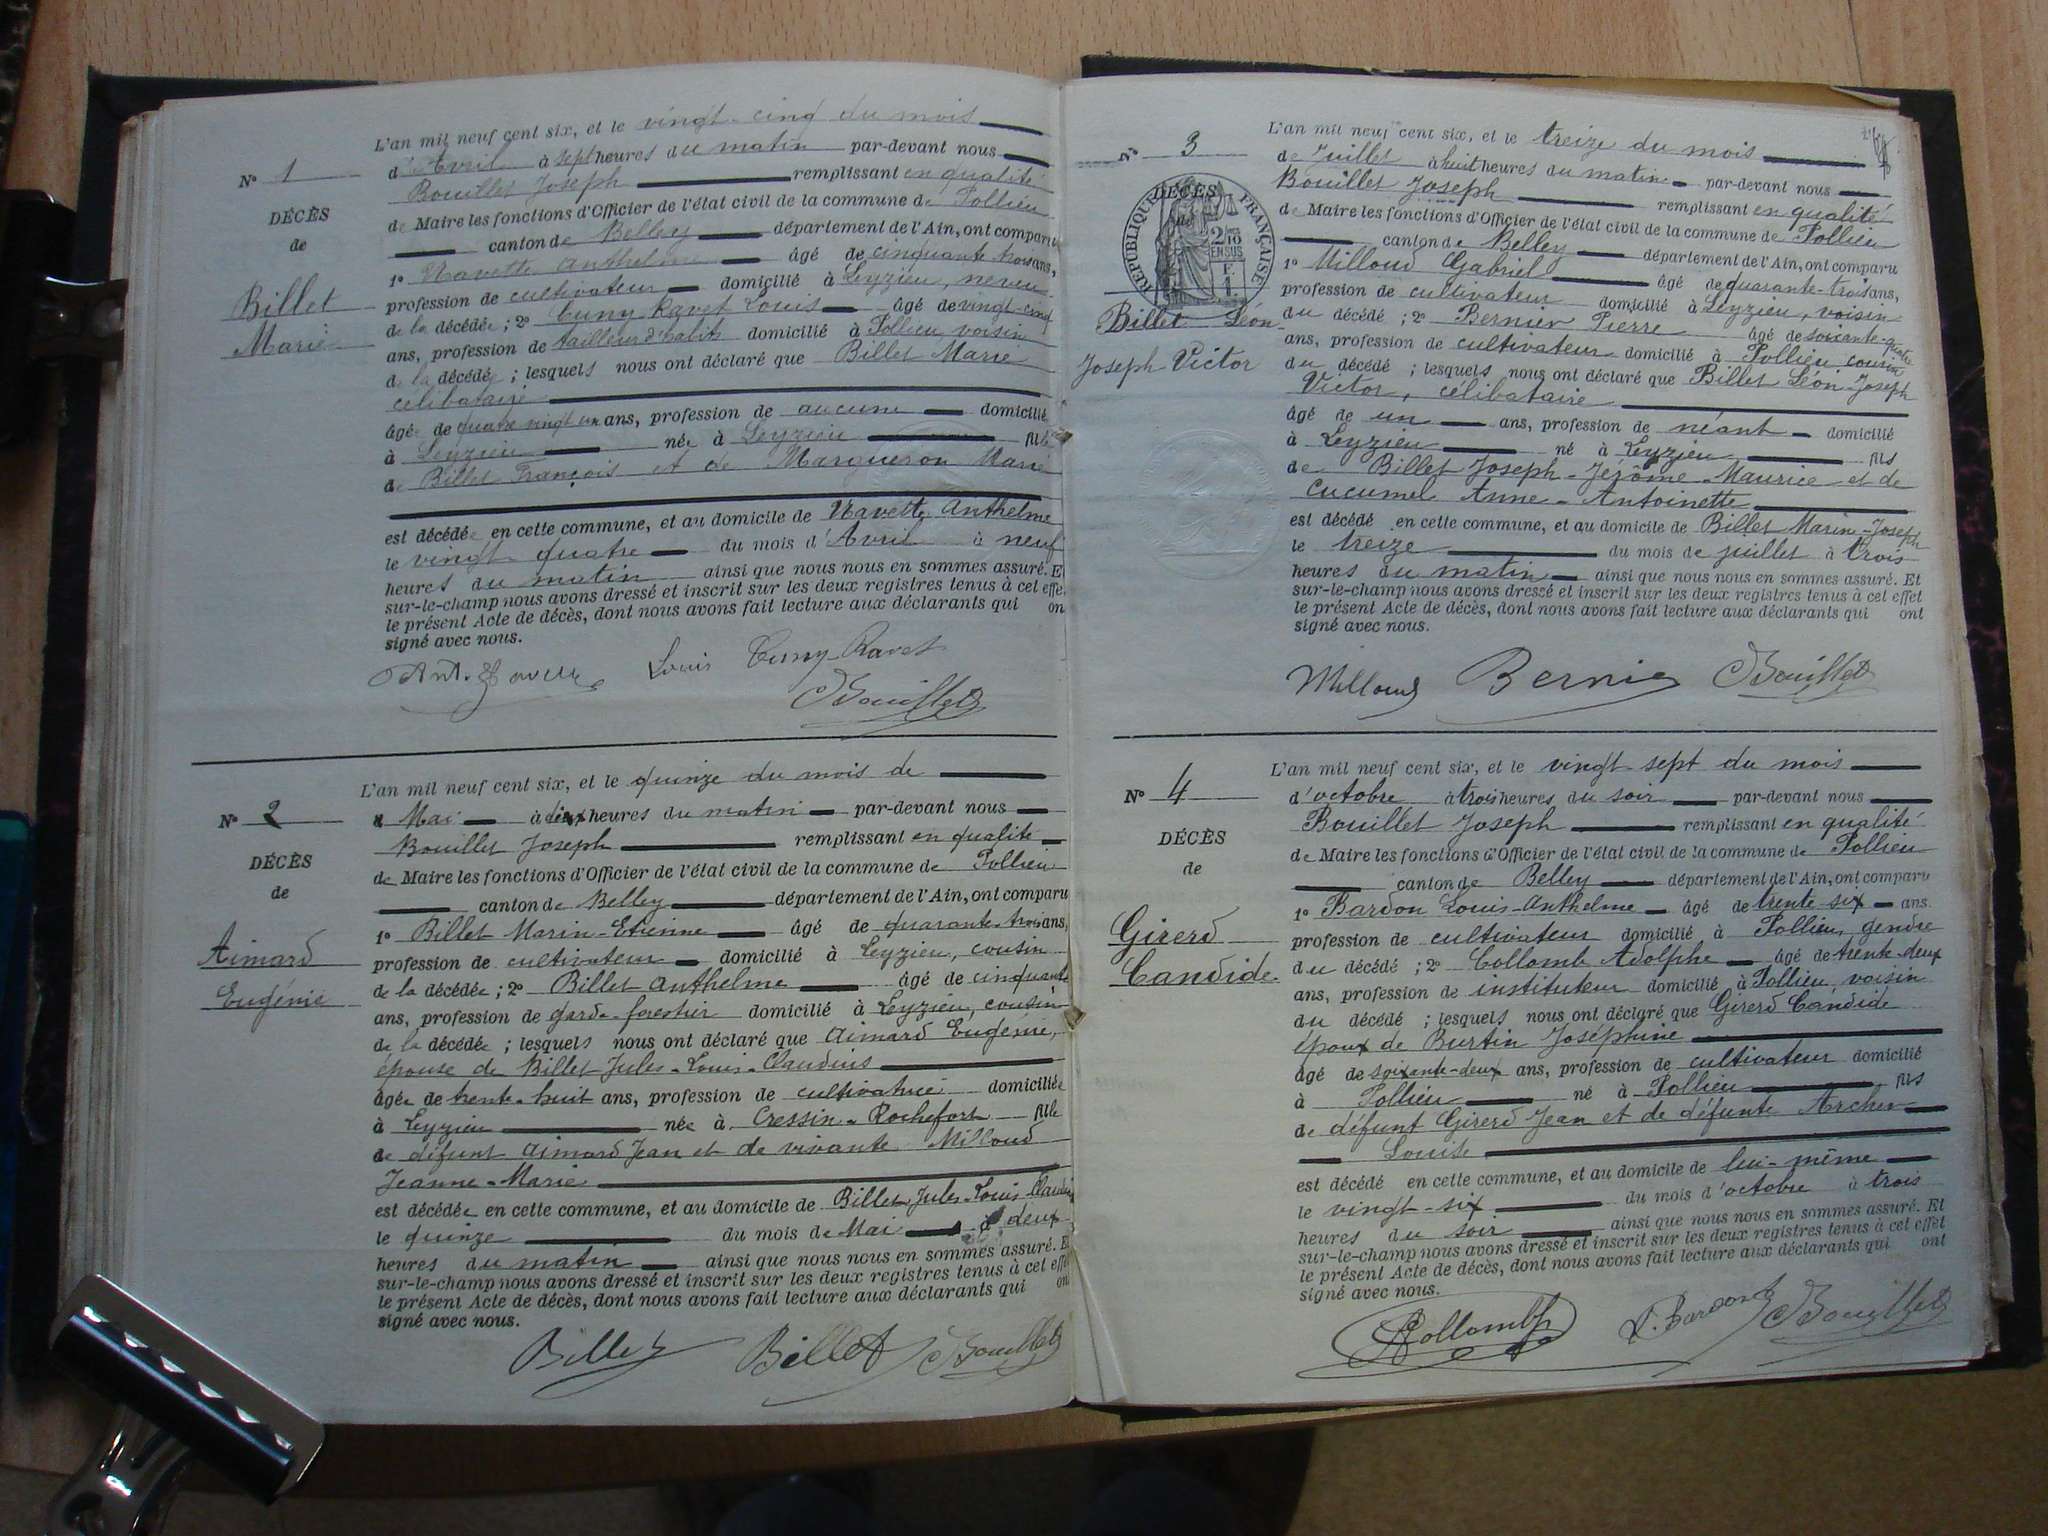 N° 1
DÉCÈS
de
Billet
Marie
L'an mil neuf cent six, et le vingt-cinq du mois
d'Avril à sept heures du matin par-devant nous
Bouillet Joseph remplissant en qualité
de Maire les fonctions d'Officier de l'état civil de la commune de Pollieu
canton de Belley département de l'Ain, ont comparu
1° Navette Anthelme âgé de cinquante trois ans,
profession de cultivateur domicilié à Leyzieu, neveu
de la décédée ; 2° Cuny-Ravet Louis âgé de vingt-cinq
ans, profession de tailleur d'habits domicilié à Pollieu voisin
de la décédée ; lesquels nous ont déclaré que Billet Marie
célibataire
âgée de quatre vingt un ans, profession de aucune domiciliée
à Leyzieu née à Leyzieu fille
de Billet François et de Margueron Marie
est décédée en cette commune, et au domicile de Navette Anthelme
le vingt quatre du mois d'Avril à neuf
heures du matin ainsi que nous nous en sommes assuré. Et
sur-le-champ nous avons dressé et inscrit sur les deux registres tenus à cet effet
le présent Acte de décès, dont nous avons fait lecture aux déclarants qui ont
signé avec nous.
Louis Cuny-Ravet
JBouillet
N° 2
DÉCÈS
de
Aimard
Eugénie
L'an mil neuf cent six, et le quinze du mois de
Mai à dix heures du matin par-devant nous
Bouillet Joseph remplissant en qualité
de Maire les fonctions d'Officier de l'état civil de la commune de Pollieu
canton de Belley département de l'Ain, ont comparu
1° Billet Marin-Etienne âgé de quarante-trois ans,
profession de cultivateur domicilié à Leyzieu, cousin
de la décédée ; 2° Billet Anthelme âgé de cinquante
ans, profession de garde-forestier domicilié à Leyzieu, cousin
de la décédée ; lesquels nous ont déclaré que Aimard Eugénie,
épouse de Billet Jules-Louis-Claudius
âgée de trente-huit ans, profession de cultivatrice domiciliée
à Leyzieu née à Cressin-Rochefort fille
de défunt Aimard Jean et de vivante Milloud
Jeanne-Marie
est décédée en cette commune, et au domicile de Billet Jules-Louis-Claudius
le quinze du mois de Mai à deux
heures du matin ainsi que nous nous en sommes assuré. Et
sur-le-champ nous avons dressé et inscrit sur les deux registres tenus à cet effet
le présent Acte de décès, dont nous avons fait lecture aux déclarants qui ont
signé avec nous.
Billet Billet JBouillet
N° 3
DÉCÈS
RÉPUBLIQUE FRANÇAISE
2/10 EN SUS
Billet Léon-
Joseph Victor
L'an mil neuf cent six, et le treize du mois
de Juillet à huit heures du matin par-devant nous
Bouillet Joseph remplissant en qualité
de Maire les fonctions d'Officier de l'état civil de la commune de Pollieu
canton de Belley département de l'Ain, ont comparu
1° Milloud Gabriel âgé de quarante-trois ans,
profession de cultivateur domicilié à Leyzieu, voisin
du décédé ; 2° Bernier Pierre âgé de soixante-quatre
ans, profession de cultivateur domicilié à Pollieu cousin
du décédé ; lesquels nous ont déclaré que Billet Léon-Joseph
Victor, célibataire
âgé de un ans, profession de néant domicilié
à Leyzieu né à Leyzieu fils
de Billet Joseph-Jérôme-Maurice et de
Cucumel Anne-Antoinette
est décédé en cette commune, et au domicile de Billet Marin-Joseph
le treize du mois de juillet à trois
heures du matin ainsi que nous nous en sommes assuré. Et
sur-le-champ nous avons dressé et inscrit sur les deux registres tenus à cet effet
le présent Acte de décès, dont nous avons fait lecture aux déclarants qui ont
signé avec nous.
Milloud Bernier JBouillet
N° 4
DÉCÈS
de
Girerd
Candide
L'an mil neuf cent six, et le vingt-sept du mois
d'octobre à trois heures du soir par-devant nous
Bouillet Joseph remplissant en qualité
de Maire les fonctions d'Officier de l'état civil de la commune de Pollieu
canton de Belley département de l'Ain, ont comparu
1° Bardon Louis-Anthelme âgé de trente-six ans.
profession de cultivateur domicilié à Pollieu, gendre
du décédé ; 2° Collomb Adolphe âgé de trente-deux
ans, profession de instituteur domicilié à Pollieu, voisin
du décédé ; lesquels nous ont déclaré que Girerd Candide
époux de Burtin Joséphine
âgé de soixante-deux ans, profession de cultivateur domicilié
à Pollieu né à Pollieu fils
de défunt Girerd Jean et de défunte Archer
Louise
est décédé en cette commune, et au domicile de lui-même
le vingt-six du mois d'octobre à trois
heures du soir ainsi que nous nous en sommes assuré. Et
sur-le-champ nous avons dressé et inscrit sur les deux registres tenus à cet effet
le présent Acte de décès, dont nous avons fait lecture aux déclarants qui ont
signé avec nous.
ACollomb L. Bardon JBouillet